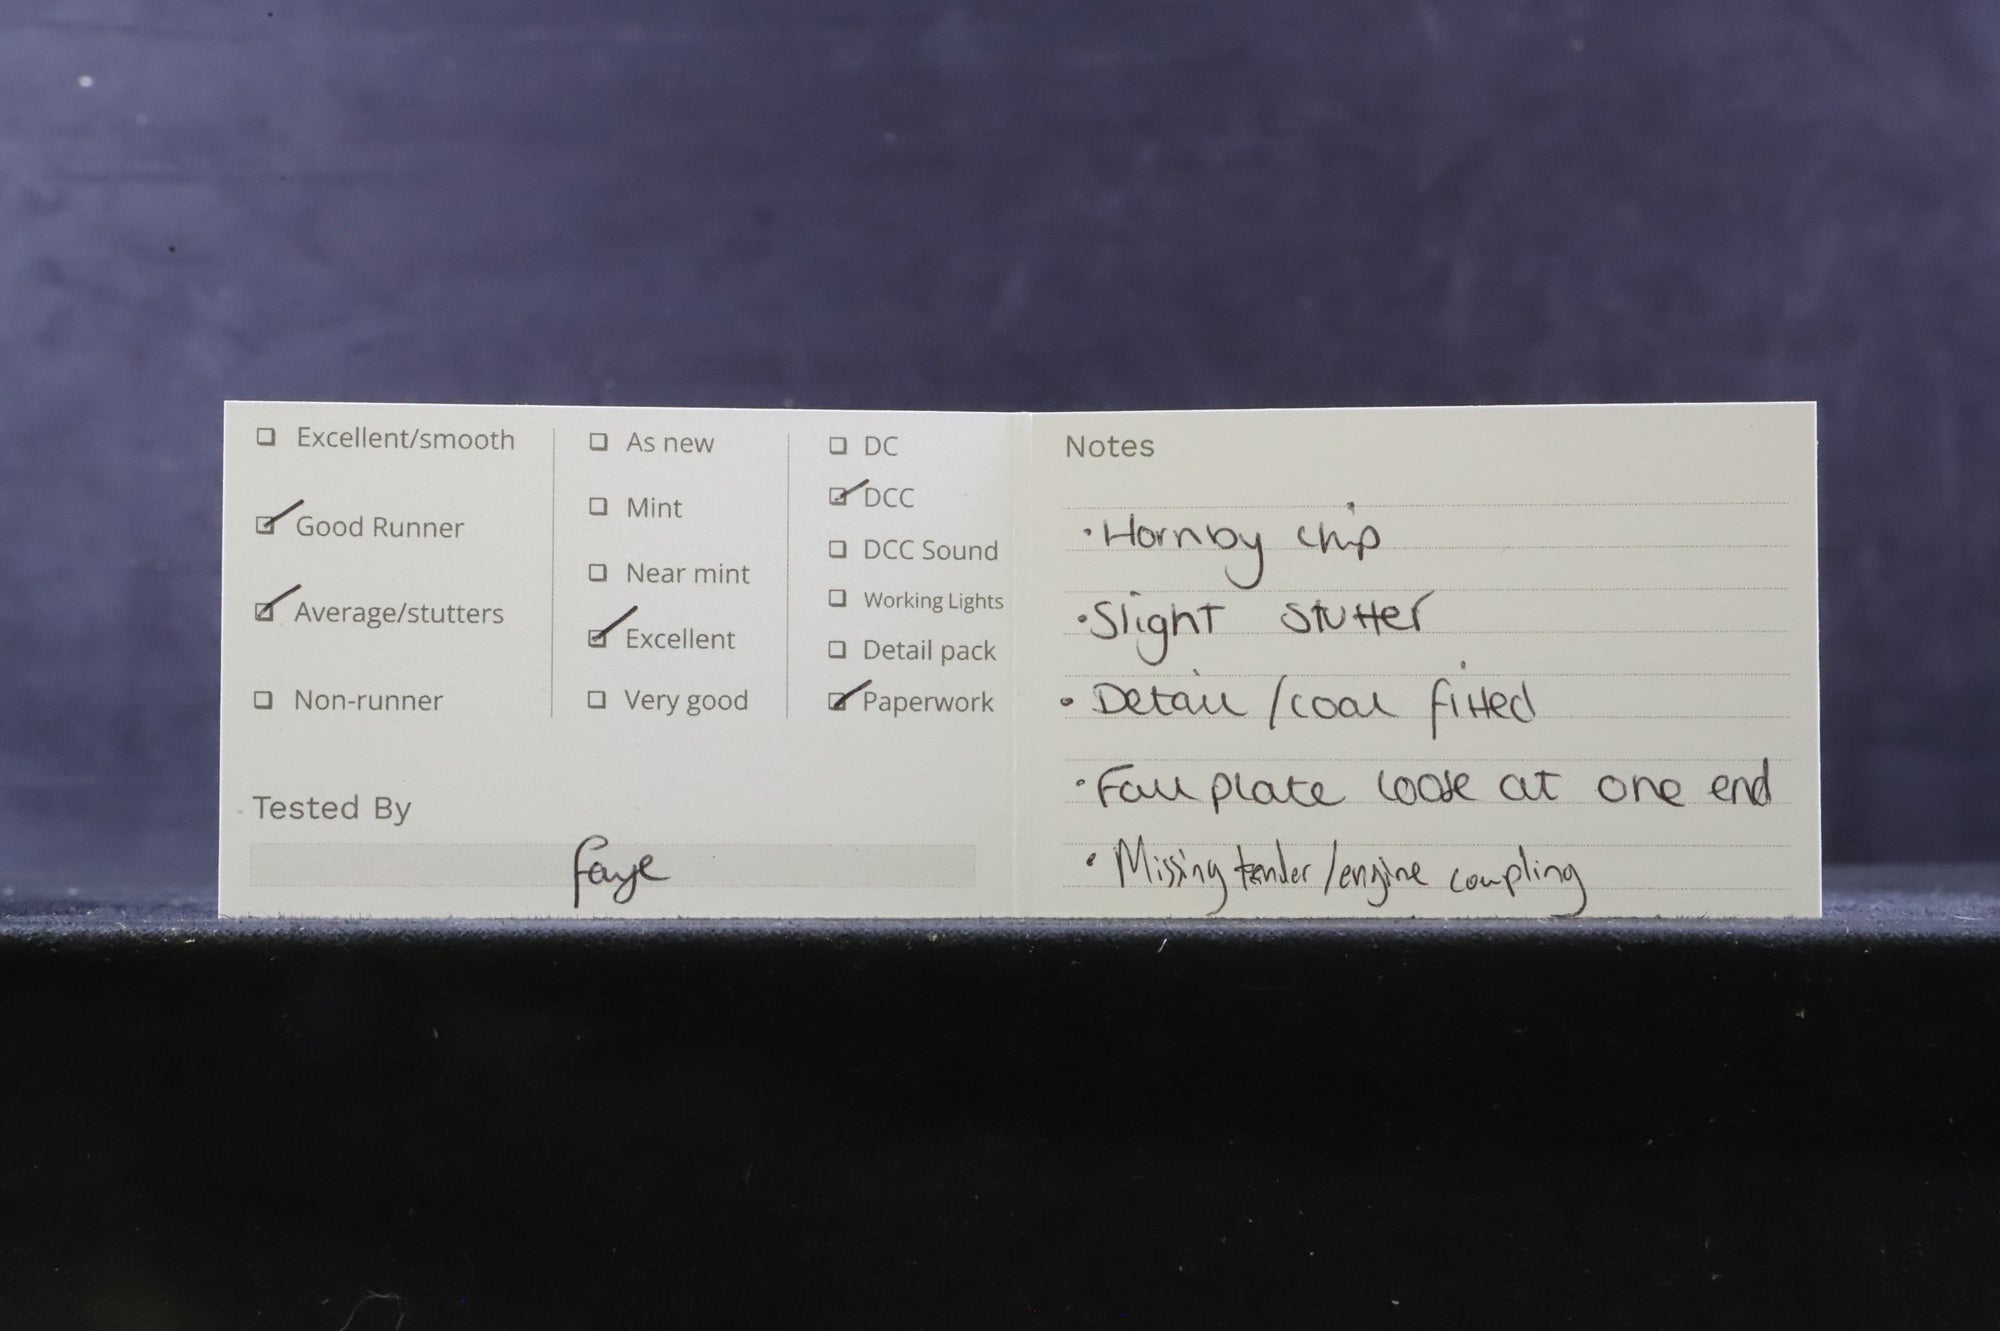 Excellent/smooth
Good Runner
Average/stutters
Non-runner
As new
Mint
Near mint
Excellent
Very good
DC
DCC
DCC Sound
Working Lights
Detail pack
Paperwork
Tested By
faye
Notes
• Hornby chip
• Slight stutter
• Detail /coal fitted
• Fall plate loose at one end
• Missing tender/engine coupling